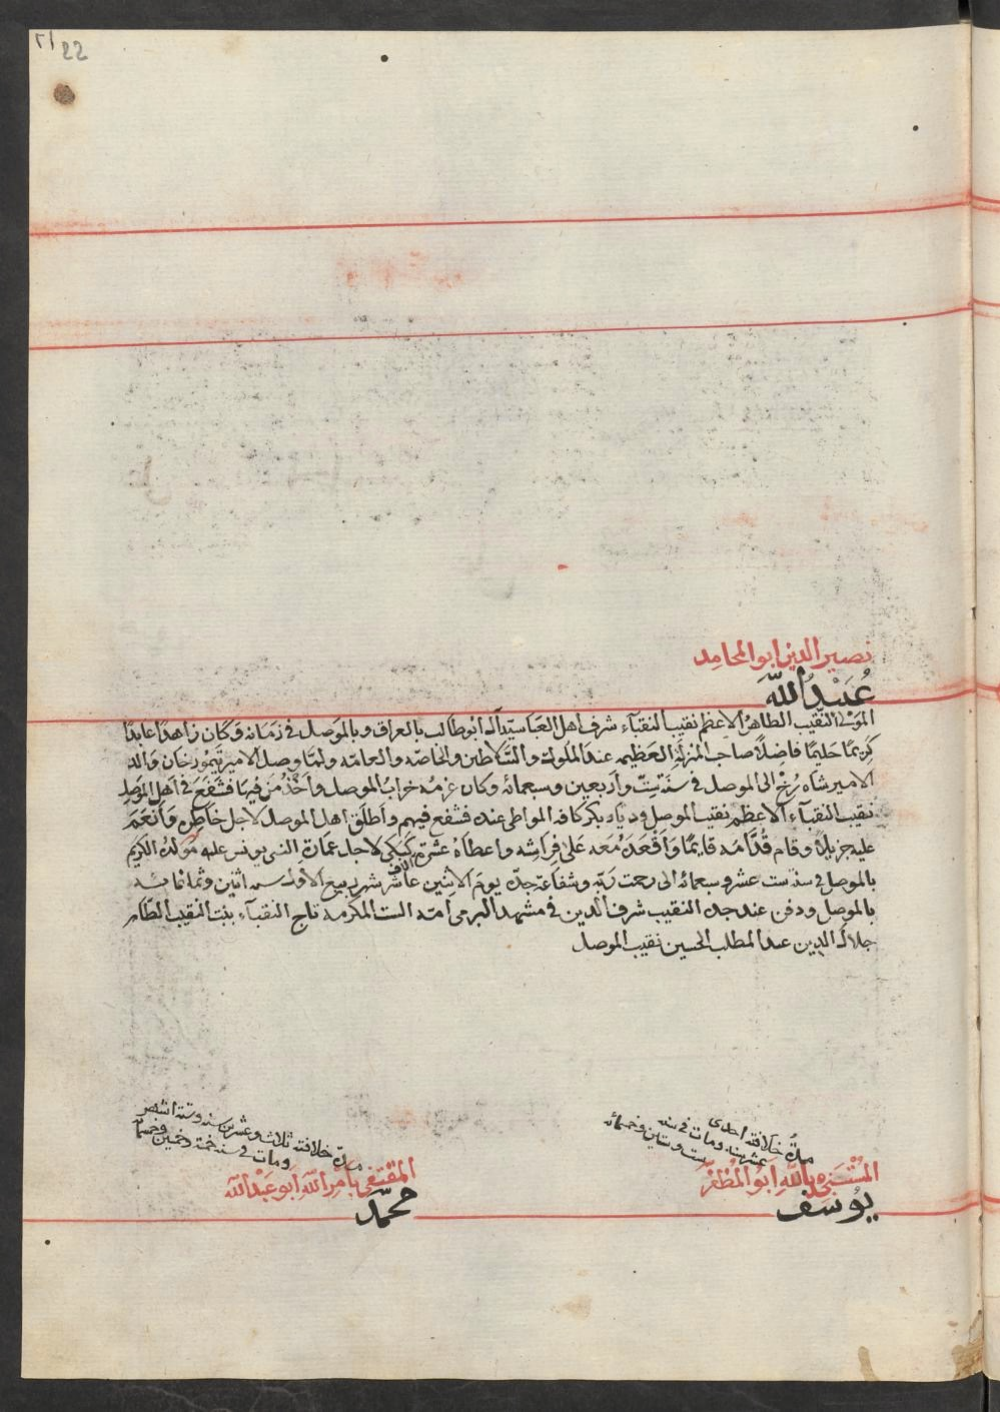 22
نصير الدين ابو المحامد
عُبَيْدُ اللَّه
المولى النقيب الطاهر الاعظم نقيب النقبآء شرف اهل العبا سيد آل ابو طالب بالعراق وبالموصل فى زمانه وكان زاهدًا عابدًا
كريمًا حليمًا فاضلًا صاحب المنزلة العظيمه عند الملوك والسلاطين والخاصّه والعامّه ولمّا وصل الامير تيمور خان والد
الامير شاه رُخ الى الموصل فى سنة ستّ وأربعين وسبعمائه وكان عزمه خرابُ الموصل واخذ من فيها فشفع فى اهل الموصل
نقيب النقبآء الاعظم نقيب الموصل وديار بكر كافه عنده فشفع فيهم وأطلق اهل الموصل لاجل خاطره وأنعم
عليه جزيلًا وقام قُدّامه قايمًا وأقعده معه على فراشه واعطاه عشرة لاجل النبى يونس عليه مولده الكريم
بالموصل فى سنة ست عشر وسبعمائه الى رحمت ربّه وشفاعة جدّه يوم الاثنين عاشر شهر ربيع الاول سنه اثنين وثمانمائه
بالموصل ودفن عند جده النقيب شرف الدين فى مشهد امّه الست المكرمه تاج النقبآء بنت النقيب الطاهر
جلال الدين عبد المطلب الحسين نقيب الموصل
مدّة خلافته احدى
عشر سنه ومات فى سنه
ست وستين وخمسمائه
المُسْتَنجد بِاللَّهِ ابُو المُظفَّر
يوُسف
مدة خلافته ثلاث وعشرين سنه وستة اشهر
ومات فى سنه خمسة وخمسين وخمسمائة
المُقْتفى بأمر الله ابو عَبْد الله
محمّد